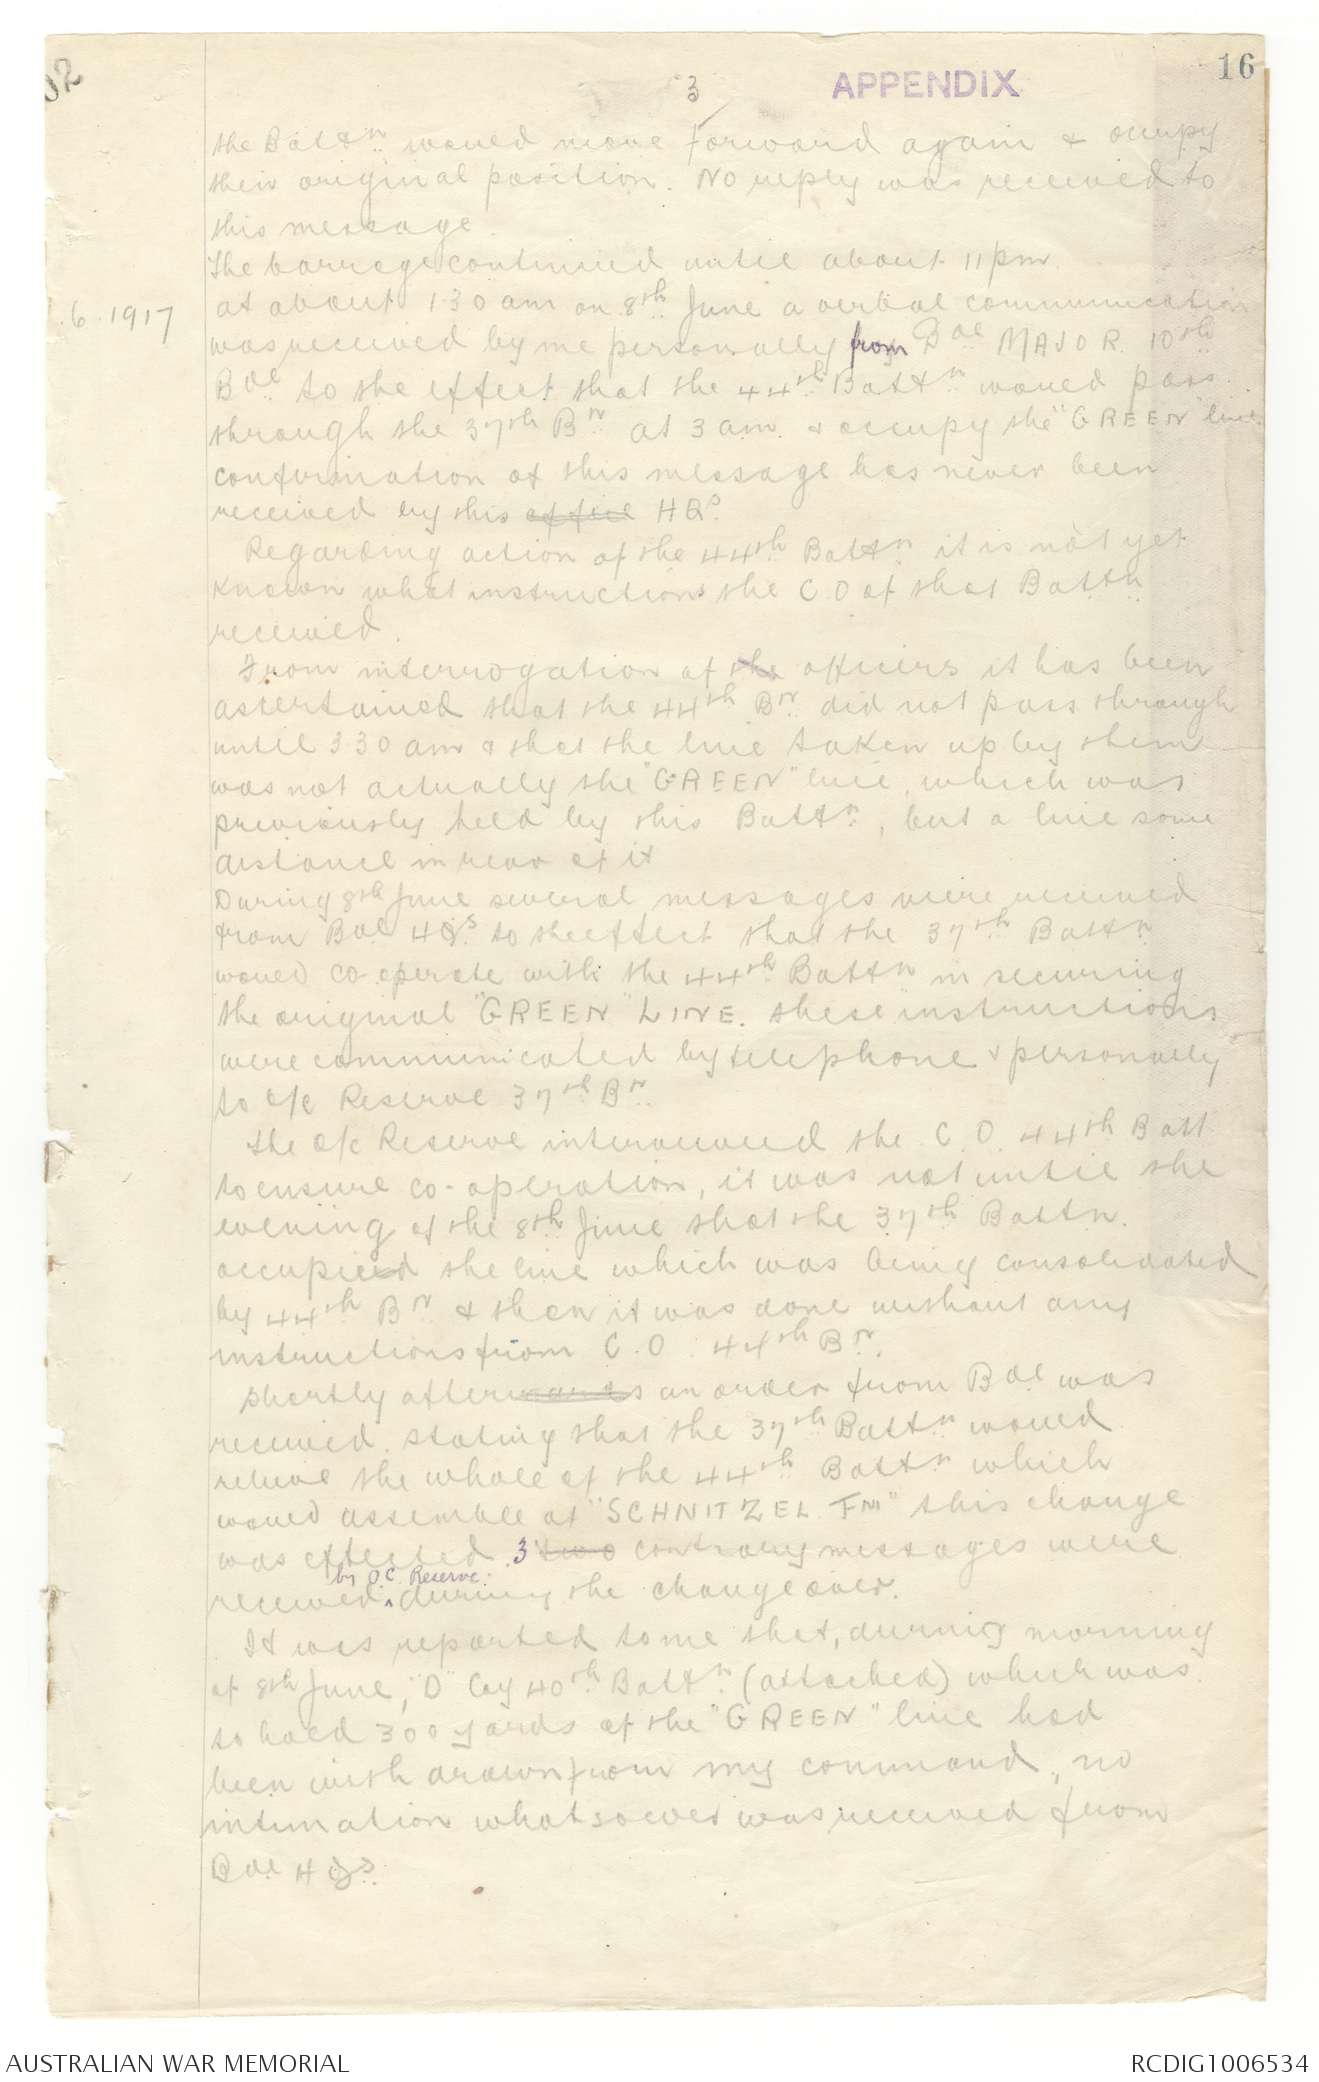 16
3
APPENDIX
the Battn. would move forward again & occupy
their original position. No reply was received to
this message.
The barrage continued until about 11pm
.6.1917
at about 130 am on 8th June a verbal communication
was received by me personally from Bde MAJOR. 10th
Bde to the effect that the 44th Battn would pass
through the 37th Bn at 3 am. & occupy the "GREEN" line
confirmation of this message has never been
received by this office HQs.
Regarding action of the 44th Battn it is not yet
known what instructions the C.O of that Battn
received.
From interrogation of the officers it has been
ascertained that the 44th Bn did not pass through
until 330 am & that the line taken up by them
was not actually the "GREEN" line, which was
previously held by this Battn, but a line some
distance in rear of it
During 8th June several messages were received
from Bde HQs to the effect that the 37th Battn
would co-operate with the 44th Battn in securing
the original "GREEN" LINE. these instructions
were communicated by telephone & personally
to o/c Reserve 37th Bn
The o/c Reserve interviewed the C.O. 44th Batt
to ensure co-operation, it was not until the
evening of the 8th June that the 37th Battn.
occupied the line which was being consolidated
by 44th Bn & then it was done without any
instructions from C.O. 44th Bn.
Shortly afterwards an order from Bde was
received stating that the 37th Battn would
relieve the whole of the 44th Battn which
would assemble at "SCHNITZEL FM" this change
was effected. 3 two contrary messages were
by O.C. Reserve.
received during the change over.
It was reported to me that, during morning
of 8th June, "D" Coy 40th Battn (attached) which was
to hold 300 yards of the "GREEN" line had
been withdrawn from my command, no
intimation whatsoever was received from
Bde HQs.
AUSTRALIAN WAR MEMORIAL
RCDIG1006534